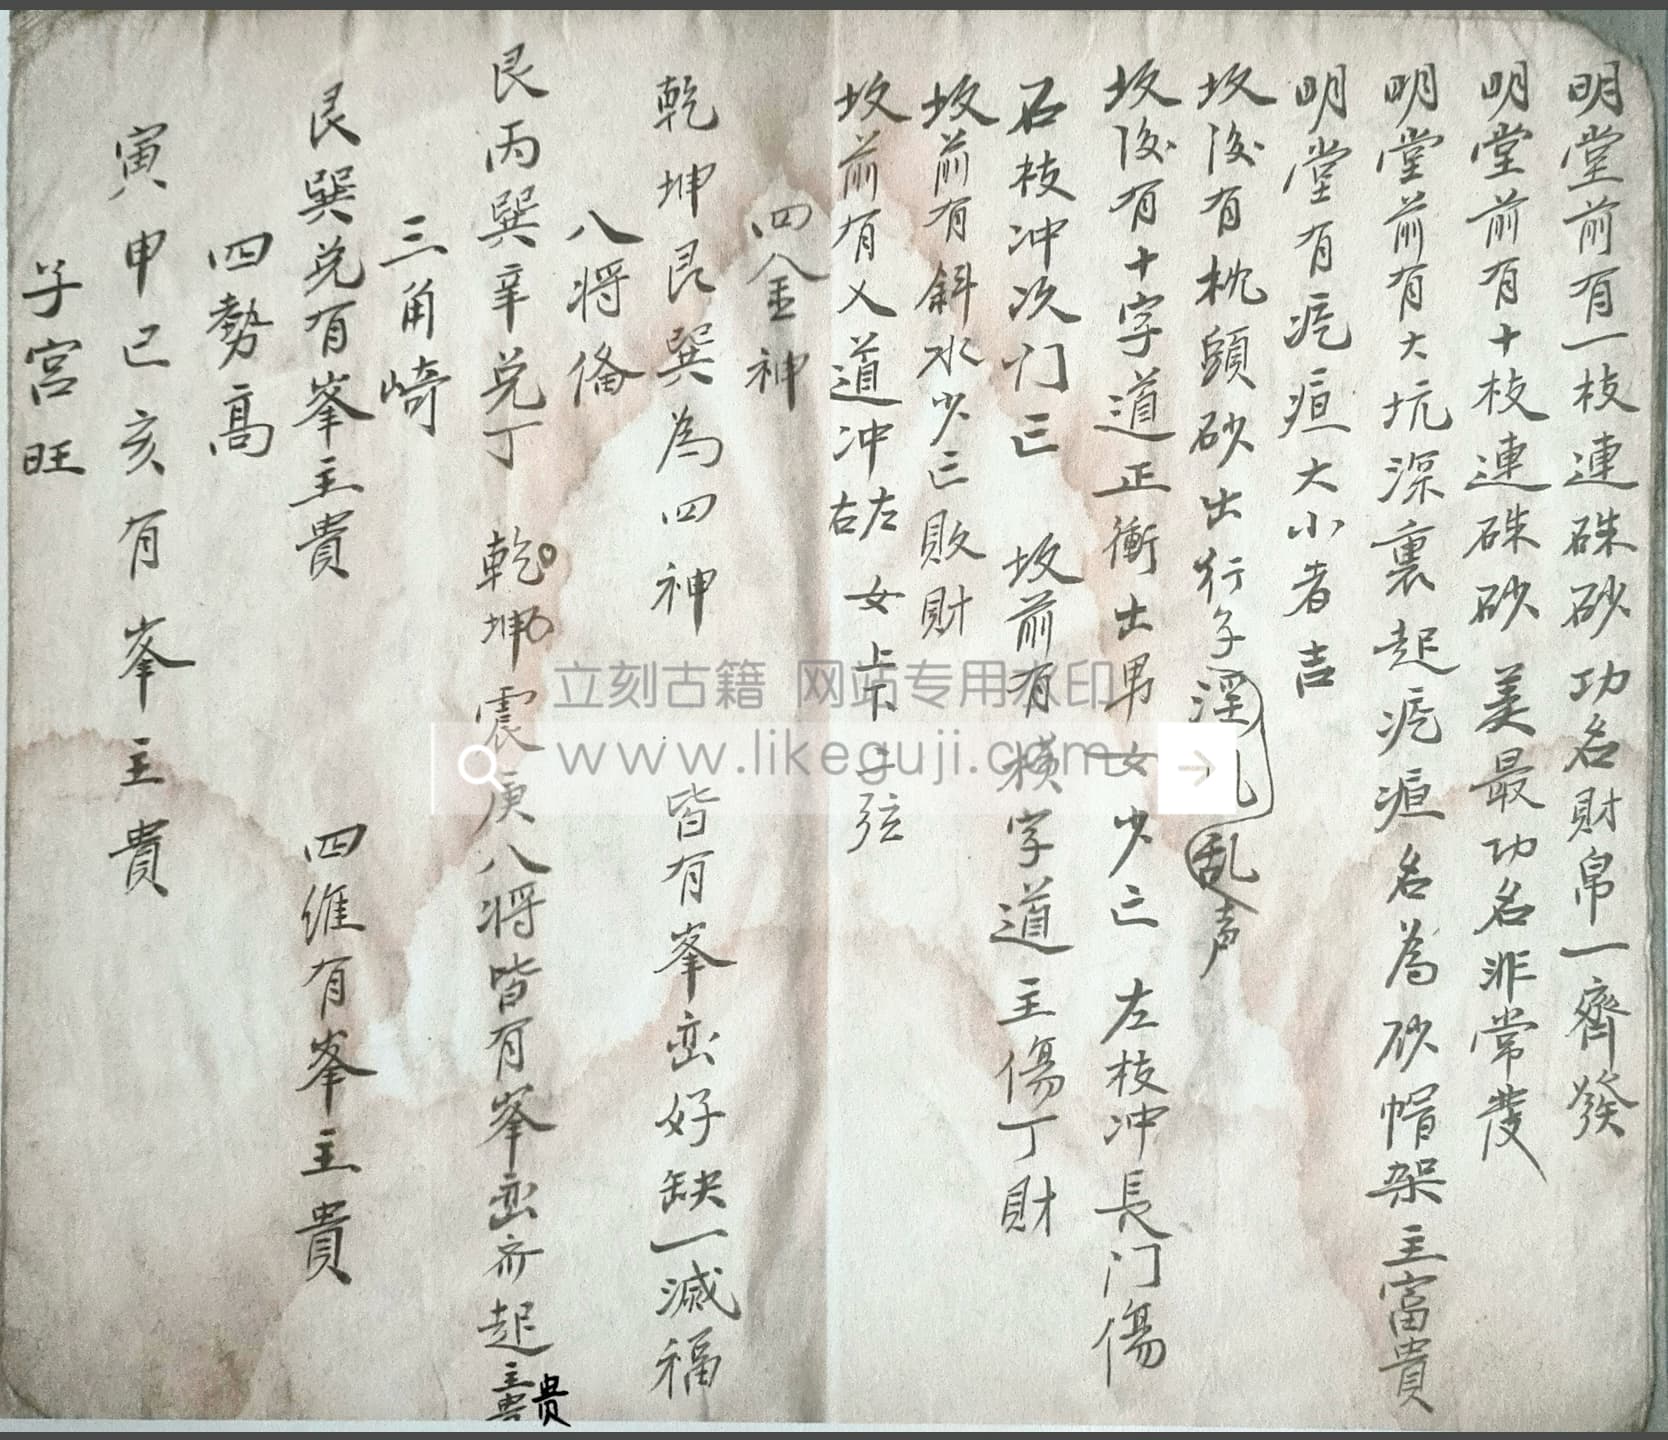 明堂前有一枝連硃砂功名財帛一齊發
明堂前有十枝連硃砂 美最功名非常發
明堂前有大坑深裏起疙疸名為砂帽架主富貴
明堂有疙疸大小者吉
坟後有枕頭砂出行子淫乱乱声
坟後有十字道正衝出男女少亡 左枝冲長门傷
右枝冲次门亡 坟前有横字道主傷丁財
坟前有斜水少亡敗財
坟前有乂道冲左右 女上下 弦
四金神
乾坤艮巽為四神 皆有峯峦好缺一滅福
八將俻
艮丙巽辛兑丁 乾坤 震庚八將皆有峯峦齐起主貴
三角崎
艮巽兑有峯主貴 四維有峯主貴
四勢高
寅申巳亥有峯主貴
子宫旺
立刻古籍 网站专用水印
www.likeguji.com